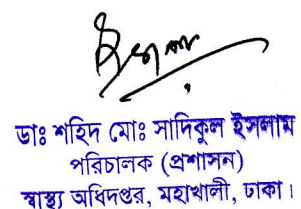 ডাঃ শহিদ মোঃ সাদিকুল ইসলাম
পরিচালক (প্রশাসন)
স্বাস্থ্য অধিদপ্তর, মহাখালী, ঢাকা।